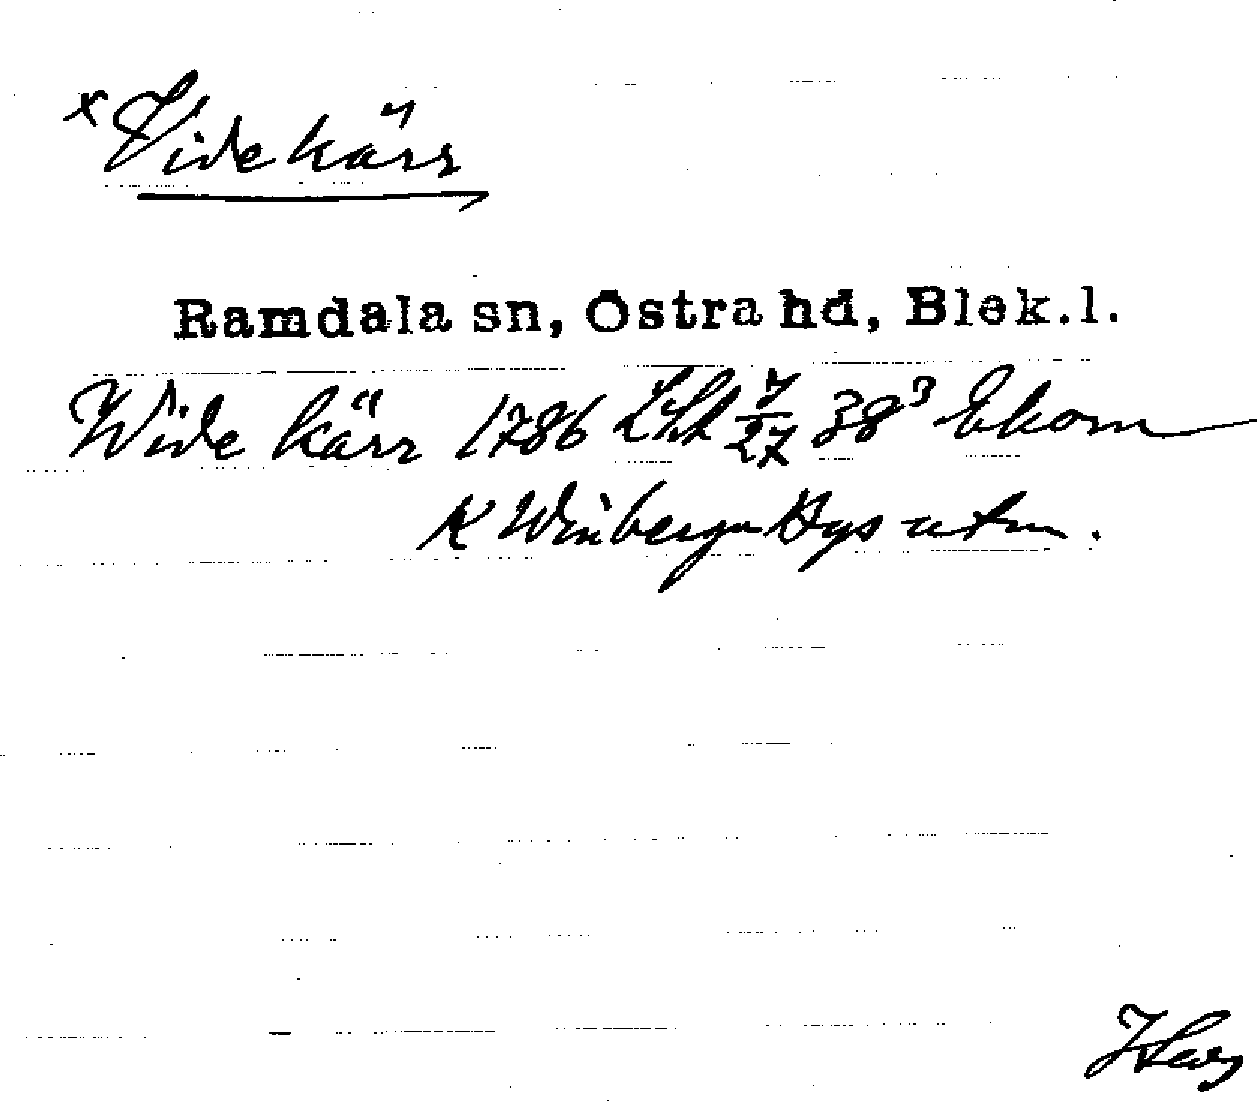 x Videkärr
Ramdala sn, Östra hd, Blek.l.
Wide kärr 1786 LSA 7/27 38³ Ekorn
K Winberga Hys utm.